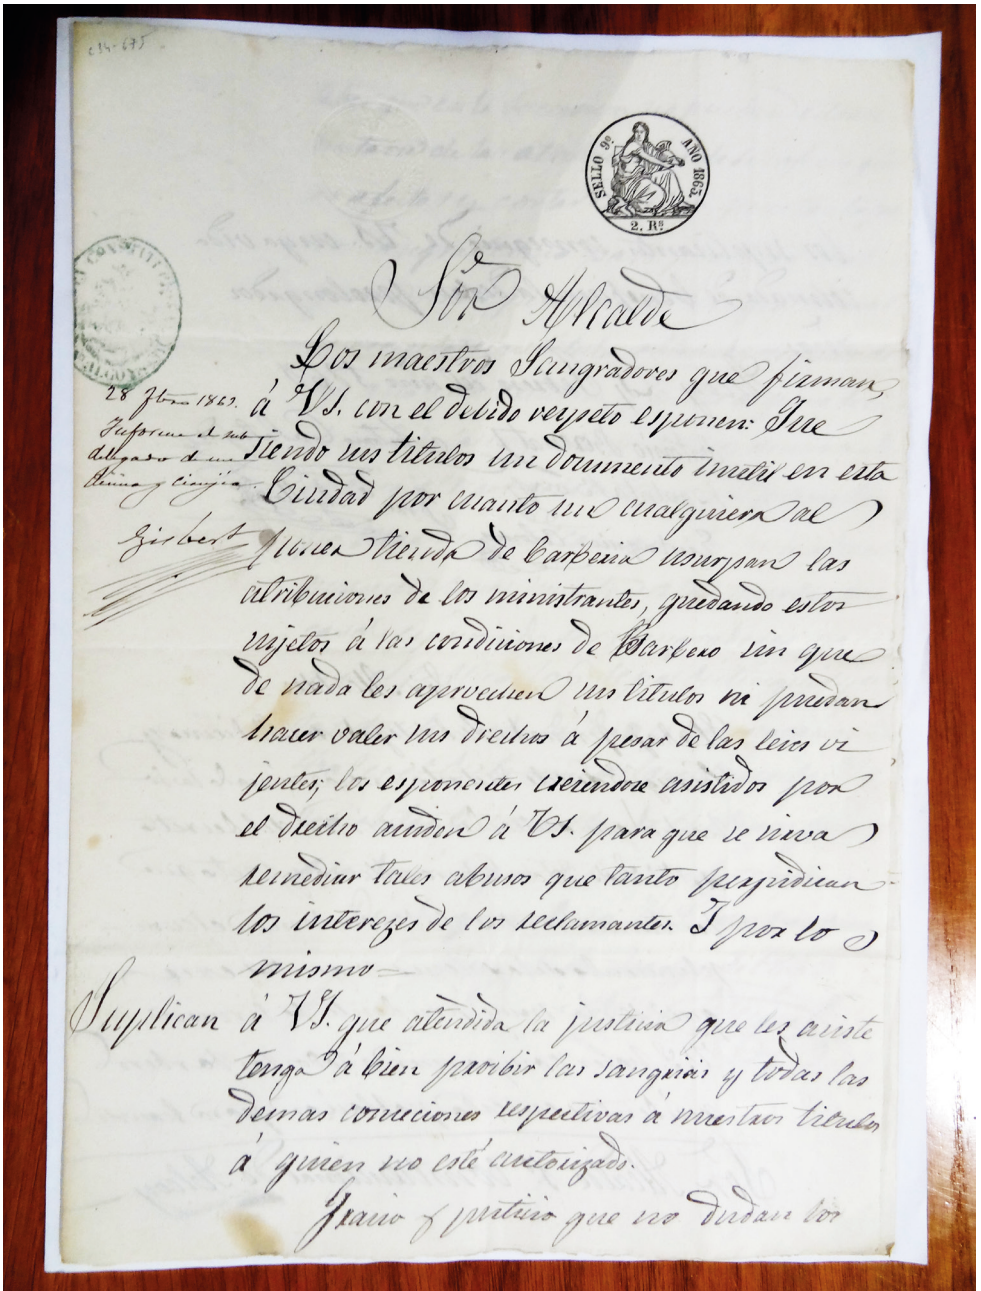 c34-675
SELLO 9º AÑO 1863.
2. Rs
Sor Alcalde
Los maestros Sangradores que firman,
á VS. con el debido respeto esponen: Que
siendo sus titulos un documento inutil en esta
Ciudad por cuanto un cualquiera al
poner tienda de Barberia usurpan las
atribuciones de los ministrantes, quedando estos
sujetos á las condiciones de Barbero sin que
de nada les aprovechen sus titulos ni puedan
hacer valer sus drechos á pesar de las leies vi
jentes; los esponentes creiendose asistidos por
el drecho acuden á VS. para que se sirva
remediar tales abusos que tanto perjudican
los interezes de los reclamantes. I por lo
mismo=
Suplican á VS. que atendida la justicia que les asiste
tenga á bien proibir las sangrias y todas las
demas comeciones respectivas á nuestros titulos
á quien no esté autorizado.
Gracia y justicia que no dudan los
28 1863.
Informe el sub
delegado de me
dicina y Cirujia.
Gisbert